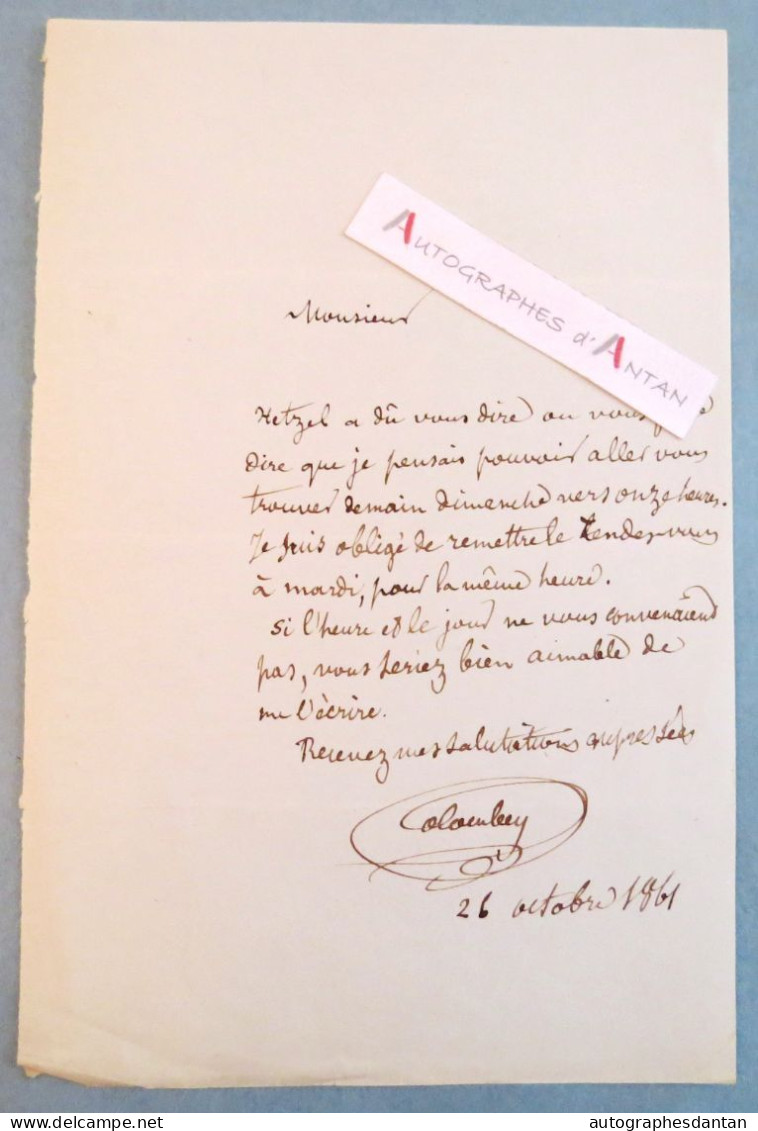 AUTOGRAPHES d'ANTAN
Monsieur
Hetzel a dû vous dire ou vous
dire que je pensais pouvoir aller vous
trouver demain dimanche vers onze heures.
Je suis obligé de remettre le Rendez-vous
à mardi, pour la même heure.
si l'heure et le jour ne vous convenaient
pas, vous seriez bien aimable de
me l'écrire.
Recevez mes salutations empressées
Colombey
26 octobre 1861
www.delcampe.net
autographesdantan